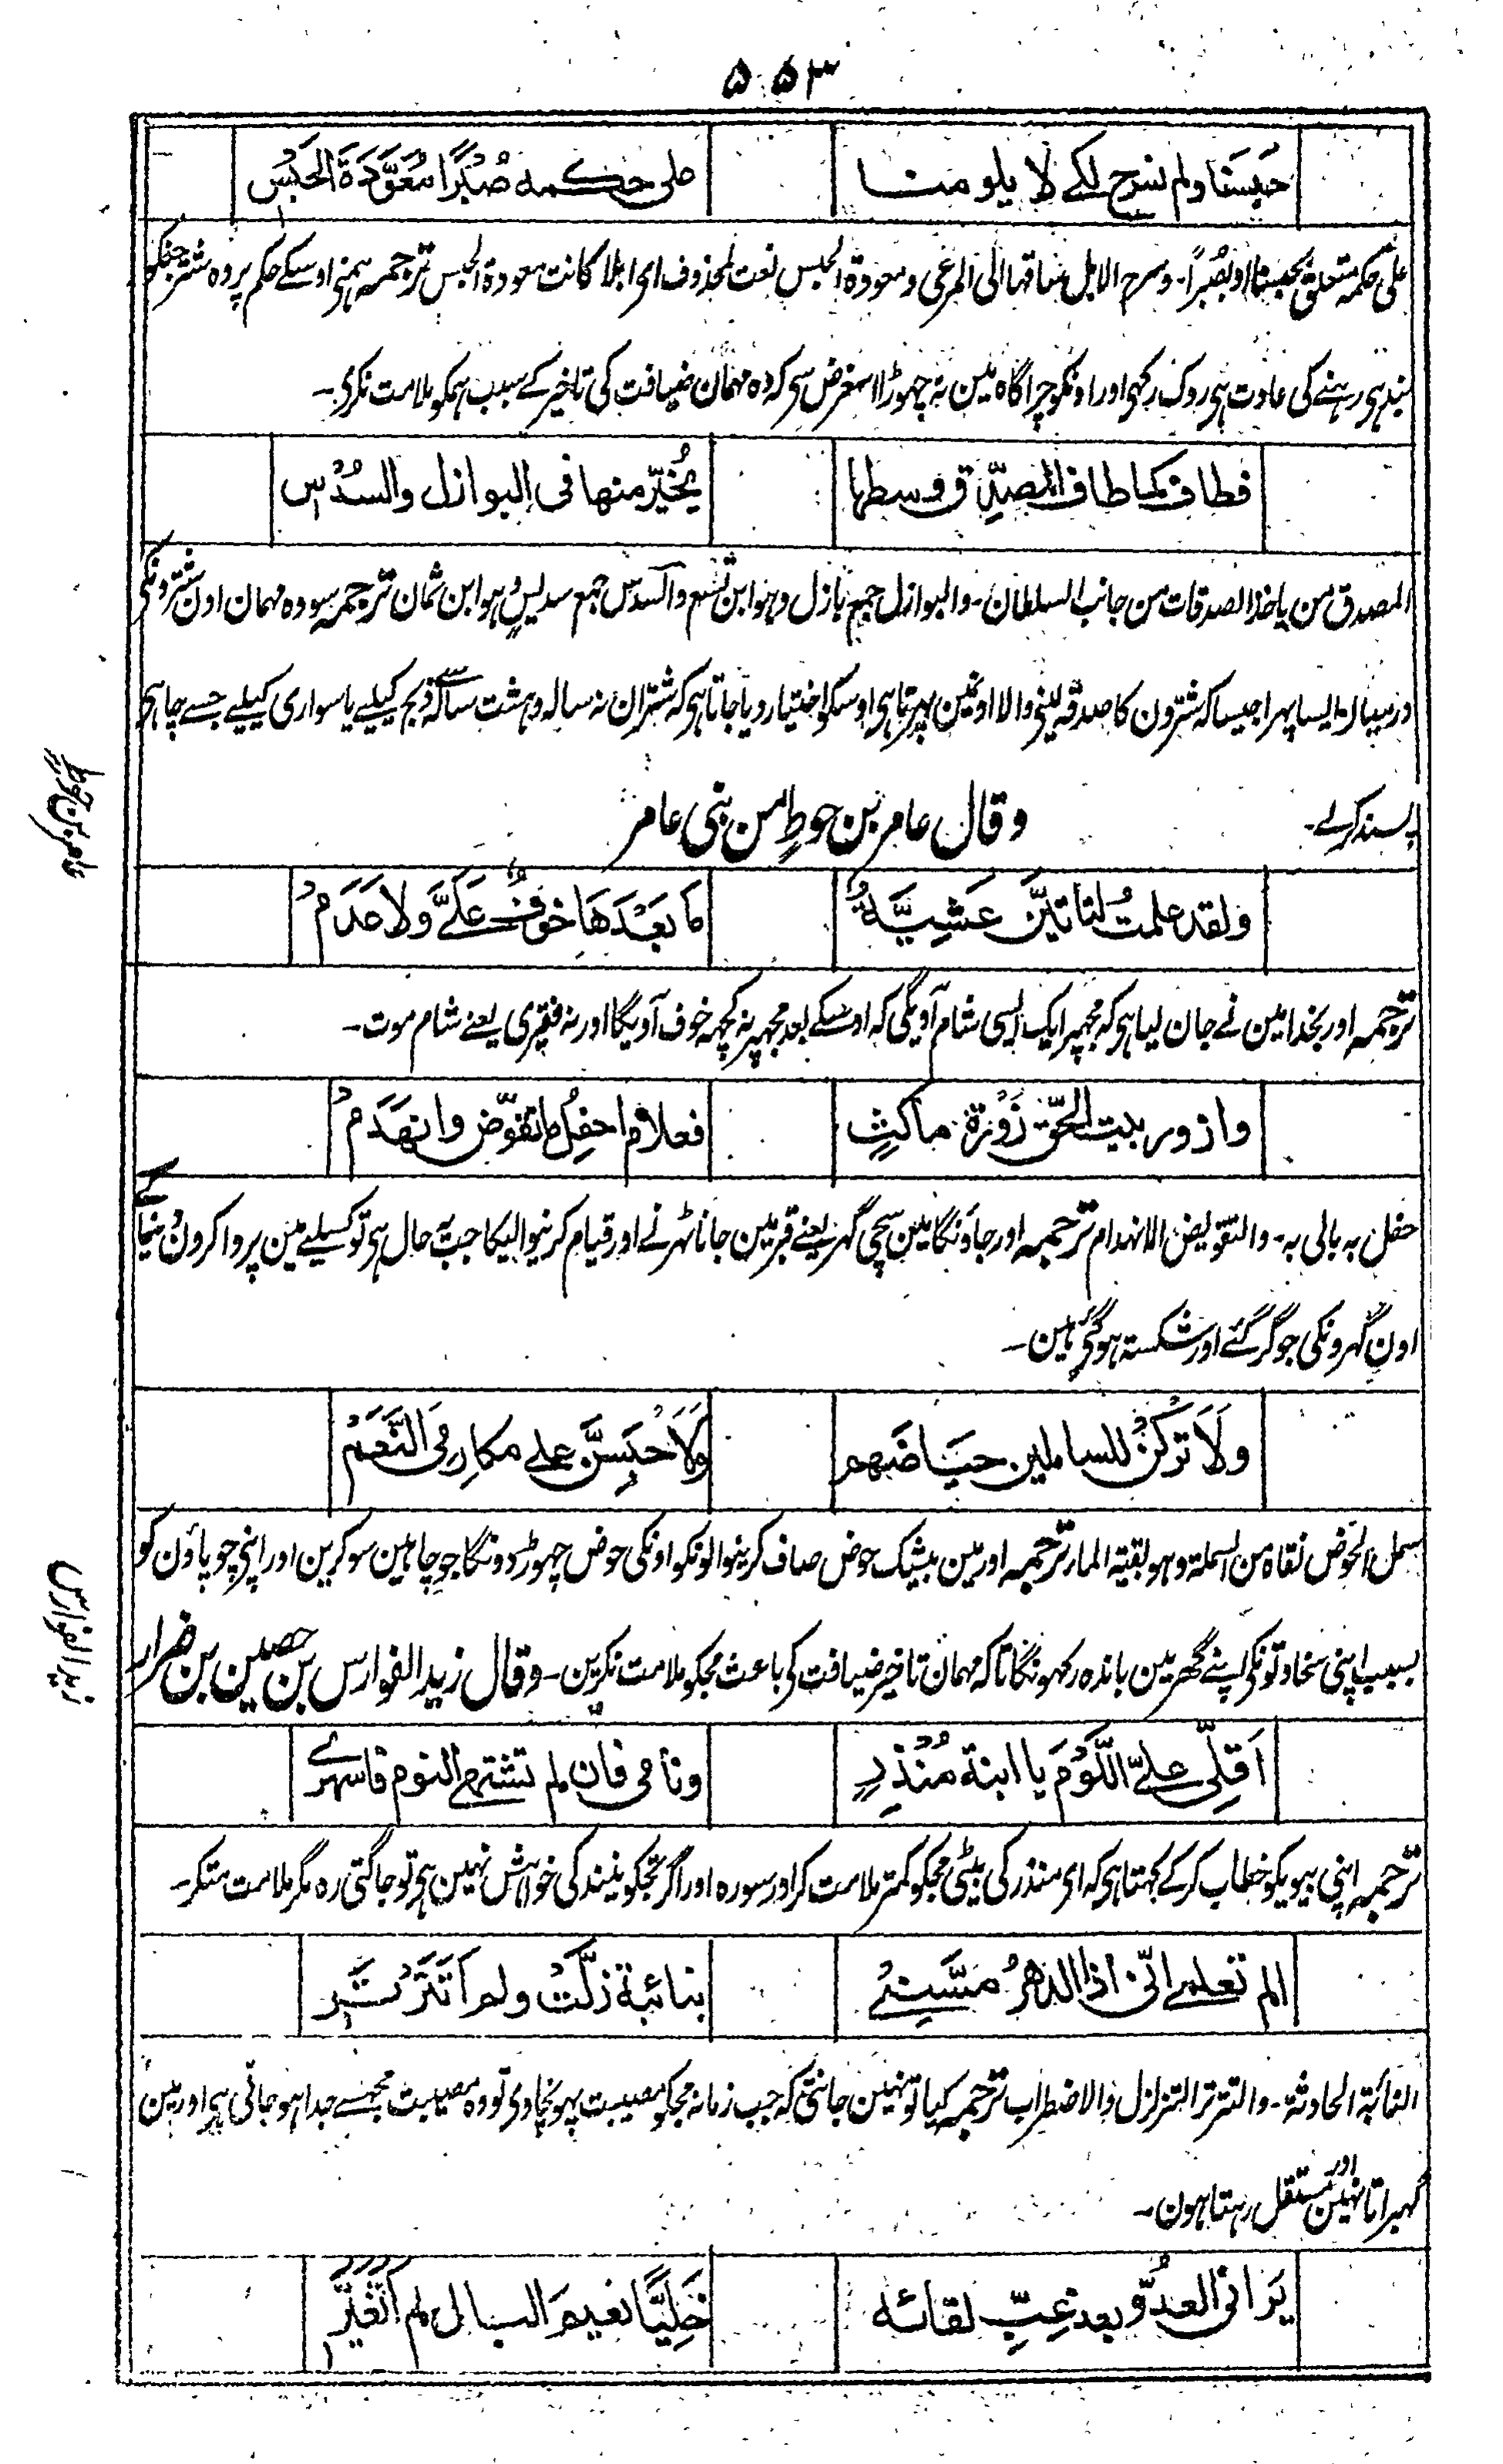 ۵۵۳
حَبَسنَا ولم نسرح لکے لا یلومنا علی حکمہ صُبْرًا مُعَوَّدَۃَ الحَبْسِ
علیٰ حکمہ متعلق بحبسنا او بصُبْراً۔ وسرح الابل ساقہا الی المرعی و معودۃ الحبس نعت لمحذوف ای ابلا کانت معودۃ الحبس ترجمہ ہمنی اوسکے حکم پر وہ شتر جنکو
بندہی رہنے کی عادت ہی روک رکہی اور اونکو چراگاہ مین نہ چہوڑا اسغرض سی کہ وہ مہمان ضیافت کی تاخیر کے سبب ہمکو ملامت نکری۔
فطاف کما طاف المصدّق وسطہا یُخیّر منہا فی البوازل والسُدْس
المصدق من یاخذ الصدقات من جانب السلطان۔ والبوازل جمع بازل وہو ابن تسع والسدس جمع سدیس وہو ابن ثمان ترجمہ سو وہ مہمان اون شترونکی
درمیان ایسا پہرا جیسا کہ شترون کا صدقہ لینی والا اونمین پہرتا ہی اوسکو اختیار دیا جاتا ہی کہ شتران نہ سالہ و ہشت سالہ سے ذبح کیلیے یا سواری کیلیے جسے چاہی
پسند کرلے۔ وقال عامر بن حوطٍ من بنی عامر
عامر بن حوط
ولقد علمتُ لتاتیَنَّ عَشِیَّۃٌ مَا بَعْدَھَا خوفٌ عَلَیَّ ولا عَدَمُ
ترجمہ اور بخدا مین نے جان لیا ہی کہ مجہپر ایک ایسی شام آویگی کہ اوسکے بعد مجہپر نہ کچہ خوف آویگا اور نہ فقیری یعنے شام موت۔
وازور بیت الحقّ زَوْرۃ ماکثٍ فعلام احفِلُ ما تقوّض وانھَدَمُ
حفل بہ بالی بہ۔ والتقویض الانہدام ترجمہ اور جاؤنگا مین سچی گہر یعنے قبر مین جانا ٹہرنے اور قیام کرنیوالیکا جب یہ حال ہی تو کسیلیے مین پروا کرون دنیا کے
اون گہرونکی جو گر گئے اور شکستہ ہوگئی ہین۔
وَلَاَتْرُکَنْ للساملین حیَاضَھم وَلَاَحْبِسَنَّ علے مکارمِی النَّعَمْ
سمل الحوض نقاہ من السملۃ وہو لبقیۃ الماء ترجمہ اور مین بیشک حوض صاف کرنیوالونکو اونکی حوض چہوڑ دونگا جو چاہین سو کرین اور اپنی چوپاؤن کو
بسبب اپنی سخاوتونکی اپنے گھر مین باندہ رکہونگا تاکہ مہمان تاخیر ضیافت کی باعث مجکو ملامت نکرین۔ وقال زید الفوارس بن حصین بن ضرار
زید الفوارس
اَقِلِّی عَلَیَّ اللَّوْمَ یا ابنۃ مُنْذِرٍ ونامی فان لم تشتھی النوم فاسہرے
ترجمہ اپنی بیویکو خطاب کرکے کہتا ہی کہ ای منذر کی بیٹی مجکو کمتر ملامت کر اور سورہ اور اگر تجکو نیند کی خواہش نہین ہی تو جاگتی رہ مگر ملامت متکر۔
الم تعلمے انّی اذا الدھرُ مسَّنِیْ بنائبۃ زلَّتْ ولم اَتَتَرْتَرِ
النائبۃ الحادثۃ۔ والتترتر التزلزل والاضطراب ترجمہ کیا تو نہین جانتی کہ جب زمانہ مجکو مصیبت پہونچاوی تو وہ مصیبت مجہسے جدا ہو جاتی ہی اور مین
گہبراتا نہین اور مستقل رہتا ہون۔
یَرانی العدُوّ بعد غِبِّ لقائہ خَلِیًّا نعیمَ البال لم اَتَغَیَّرِ